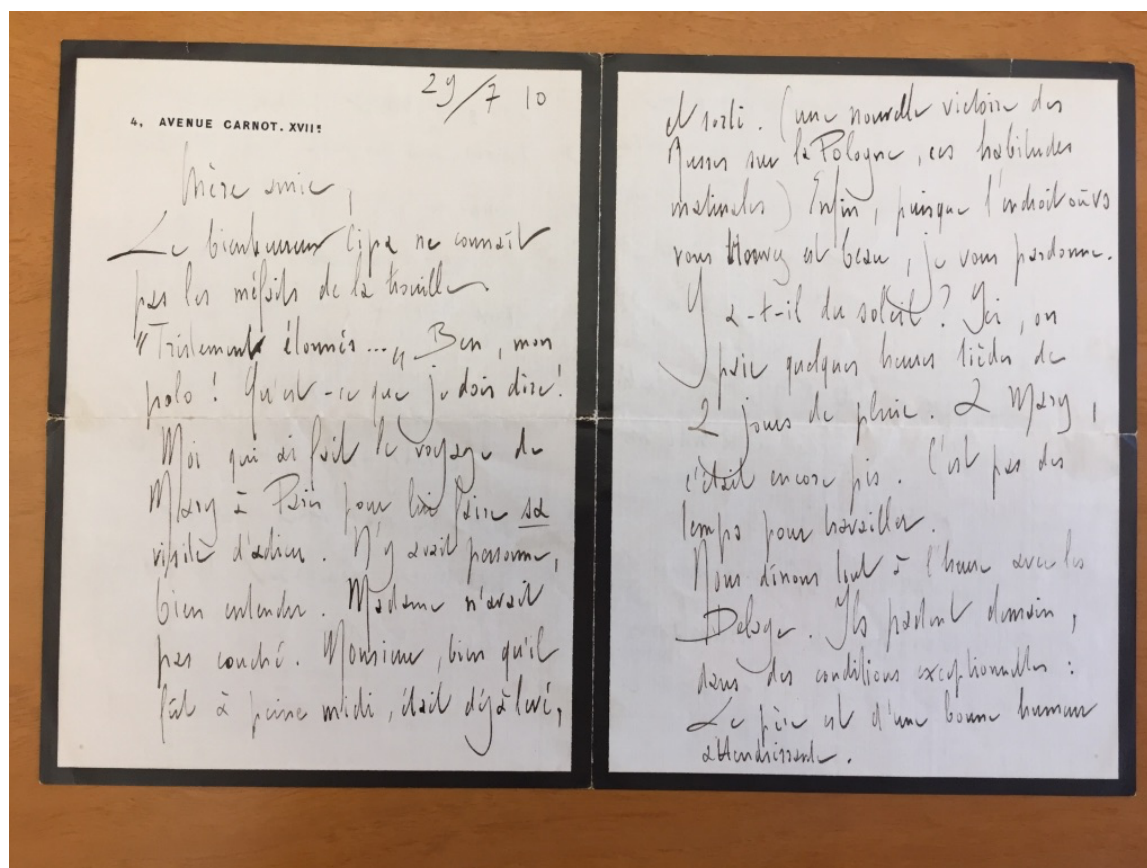 29/7 10
4, AVENUE CARNOT. XVIIe
Chère amie,
Le bienheureux Cipa ne connaît
pas les méfaits de la trouille.
"Tristement étonnés..." Ben, mon
polo ! Qu'est-ce que je dois dire !
Moi qui ai fait le voyage de
Mary à Paris pour lui faire sa
visite d'adieu. N'y avait personne,
bien entendu. Madame n'avait
pas couché. Monsieur, bien qu'il
fût à peine midi, était déjà levé,
et sorti. (une nouvelle victoire des
Russes sur la Pologne, ces habitudes
matinales) Enfin, puisque l'endroit où
vous trouvez est beau, je vous pardonne.
Y a-t-il du soleil ? Ici, on
paie quelques heures tièdes de
2 jours de pluie. A Mary,
c'était encore pis. C'est pas des
temps pour travailler.
Nous dînons tout à l'heure avec les
Delage. Ils partent demain,
dans des conditions exceptionnelles :
Le père est d'une bonne humeur
attendrissante.